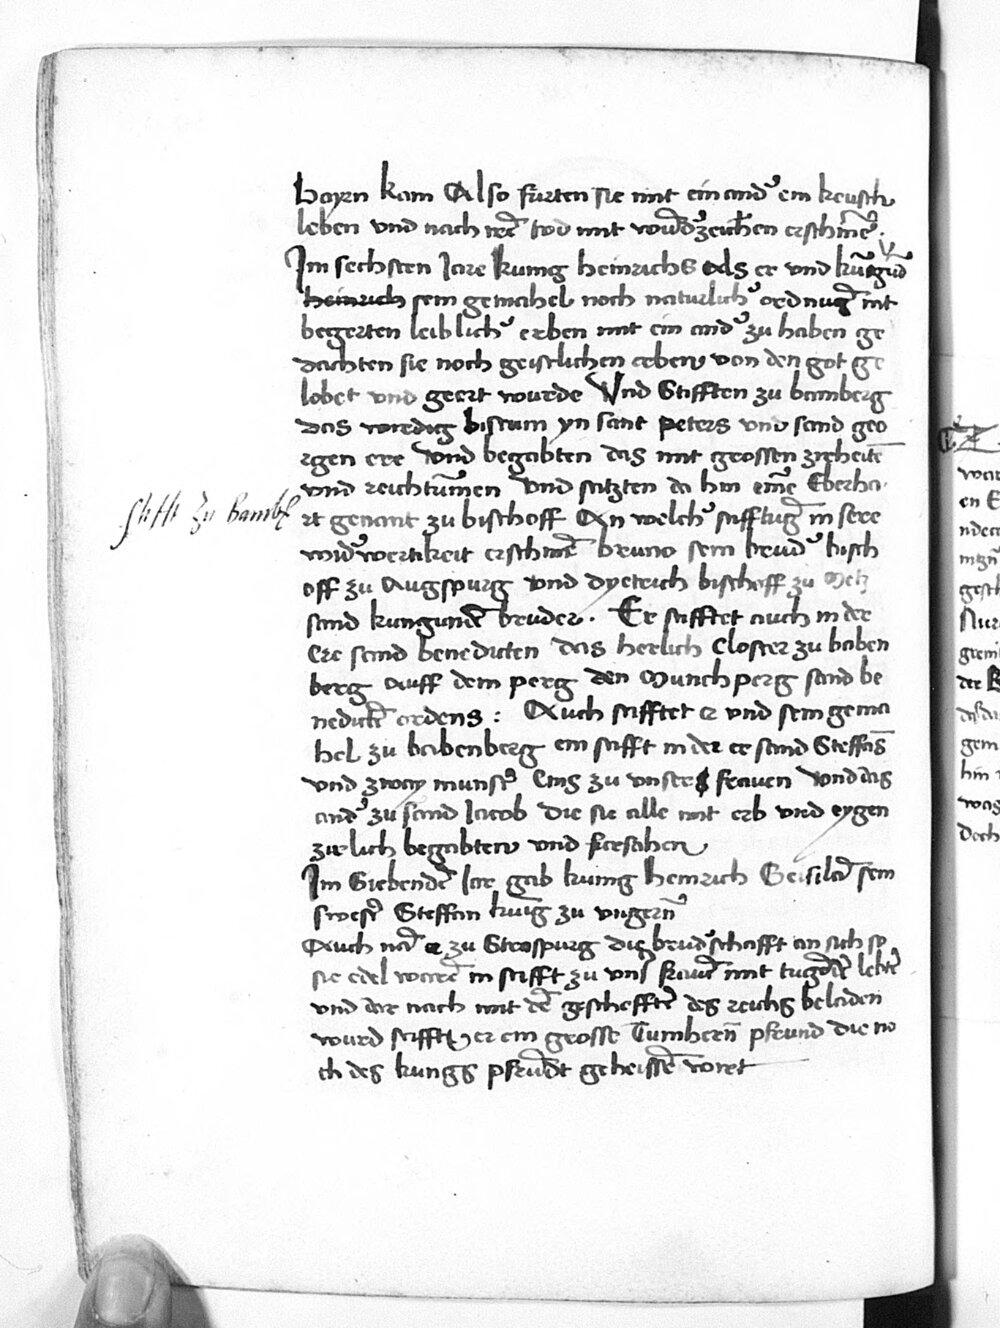 bayrn kam Also furten sie mit ein and' ein keusch
leben vnd nach irē tod mit wūd'zeichen erschinē
Im sechsten Jare kunig heinrichs Als er vnd kūgūd
heinrich sein gemahel noch naturlich' ordnūg nit
begerten leiblich' erben mit ein and' zu haben ge
dachten sie noch geistlichen erben von den got ge
lobet vnd geert wurde Vnd Stifften zu bamberg
das wirdig bistum yn sant peters vnd sand geo
rgen ere vnd begabten das mit grossen zirheitē
vnd reichtūmen vnd satzten da hin einē Eberha
rt genant zu bischoff An welch' stifftūg in sere
wid'wertikeit erschinē bruno sein brud' bisch
off zu Augspurg vnd dyetrich bischoff zu Metz
sand kungundē bruder. Er stifftet auch in der
Ere sand benedicten das herlich Closter zu baben
berg Auff dem perg den Munchperg sand be
nedictē ordens : Auch stifftet er vnd sein gema
hel zu babenberg ein stifft in der er sand Steffās
vnd zway munst' Eins zu vnser frauen vnd das
and' zu sand Jacob die sie alle mit erb vnd eygen
zirlich begabten vnd fursahen
Im Siebendē Jar gab kunig heinrich Geisilā sein
swest' Steffan kunig zu vngern
Auch zu Straspurg die brud'schafft an sich so
sie edel warē in stifft zu vns' frauē mit tugēdē lebtē
vnd dar nach mit dē geschefftē des reichs beladen
wurd stifft er ein grosse Tumhern pfrund die no
ch des kungs pfrūdt geheissē wirt
stifft zu bambg